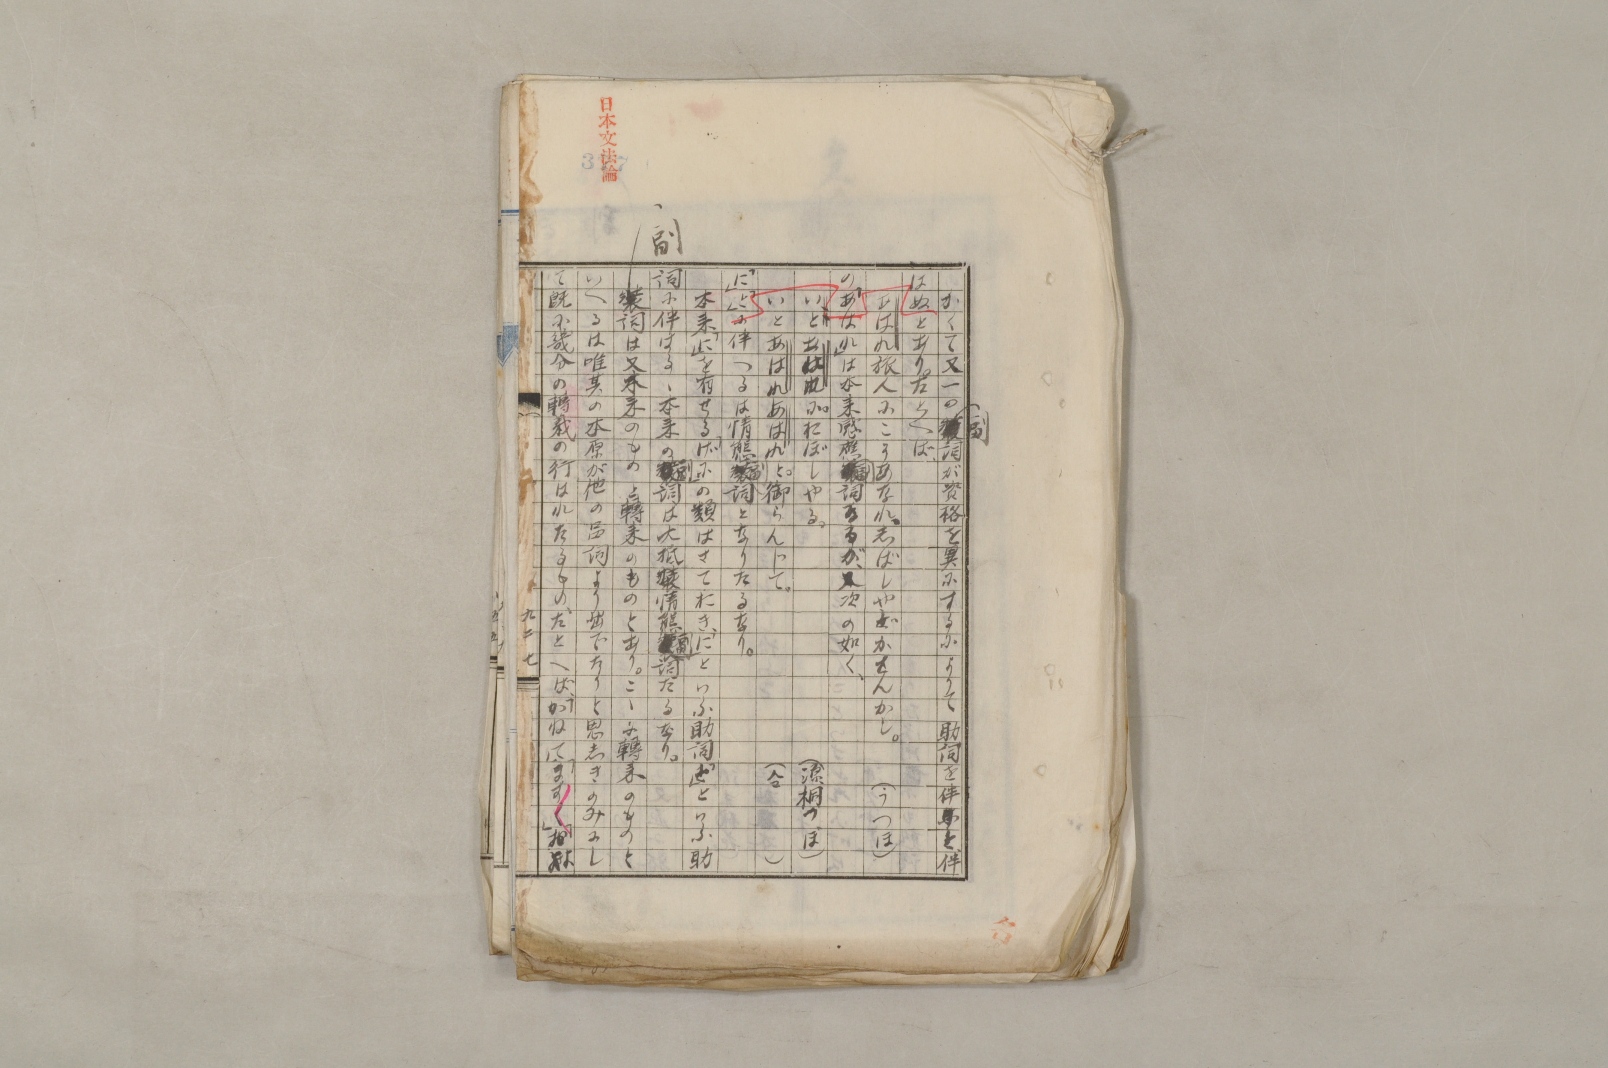 日本文法論
副
かくて又一の副詞が資格を異にするによりて助詞を伴ふと伴
はぬとあり。たとへば、
あはれ旅人にこうあなれ。しばしやどかさんかし。(うつほ)
の「あはれ」は本来感應副詞なるが、又次の如く、
いとあはれにおぼしやる。(源桐つほ)
いとあはれあはれと御らんじて。(仝)
「に」「と」に伴へるは情態副詞となりたるなり。
本来「に」を有せる「げに」の類はさておき、「に」といふ助詞「と」といふ助
詞に伴はるゝ本来の副詞は大抵情態副詞たるなり。
副詞は又本来のものと轉来のものとあり。こゝに轉来のものと
いへるは唯其の本原が他の品詞より出でたりと思しきのみにし
て既に幾分の轉成の行はれたるもの、たとへば、「かねて」「ますく」
九二七